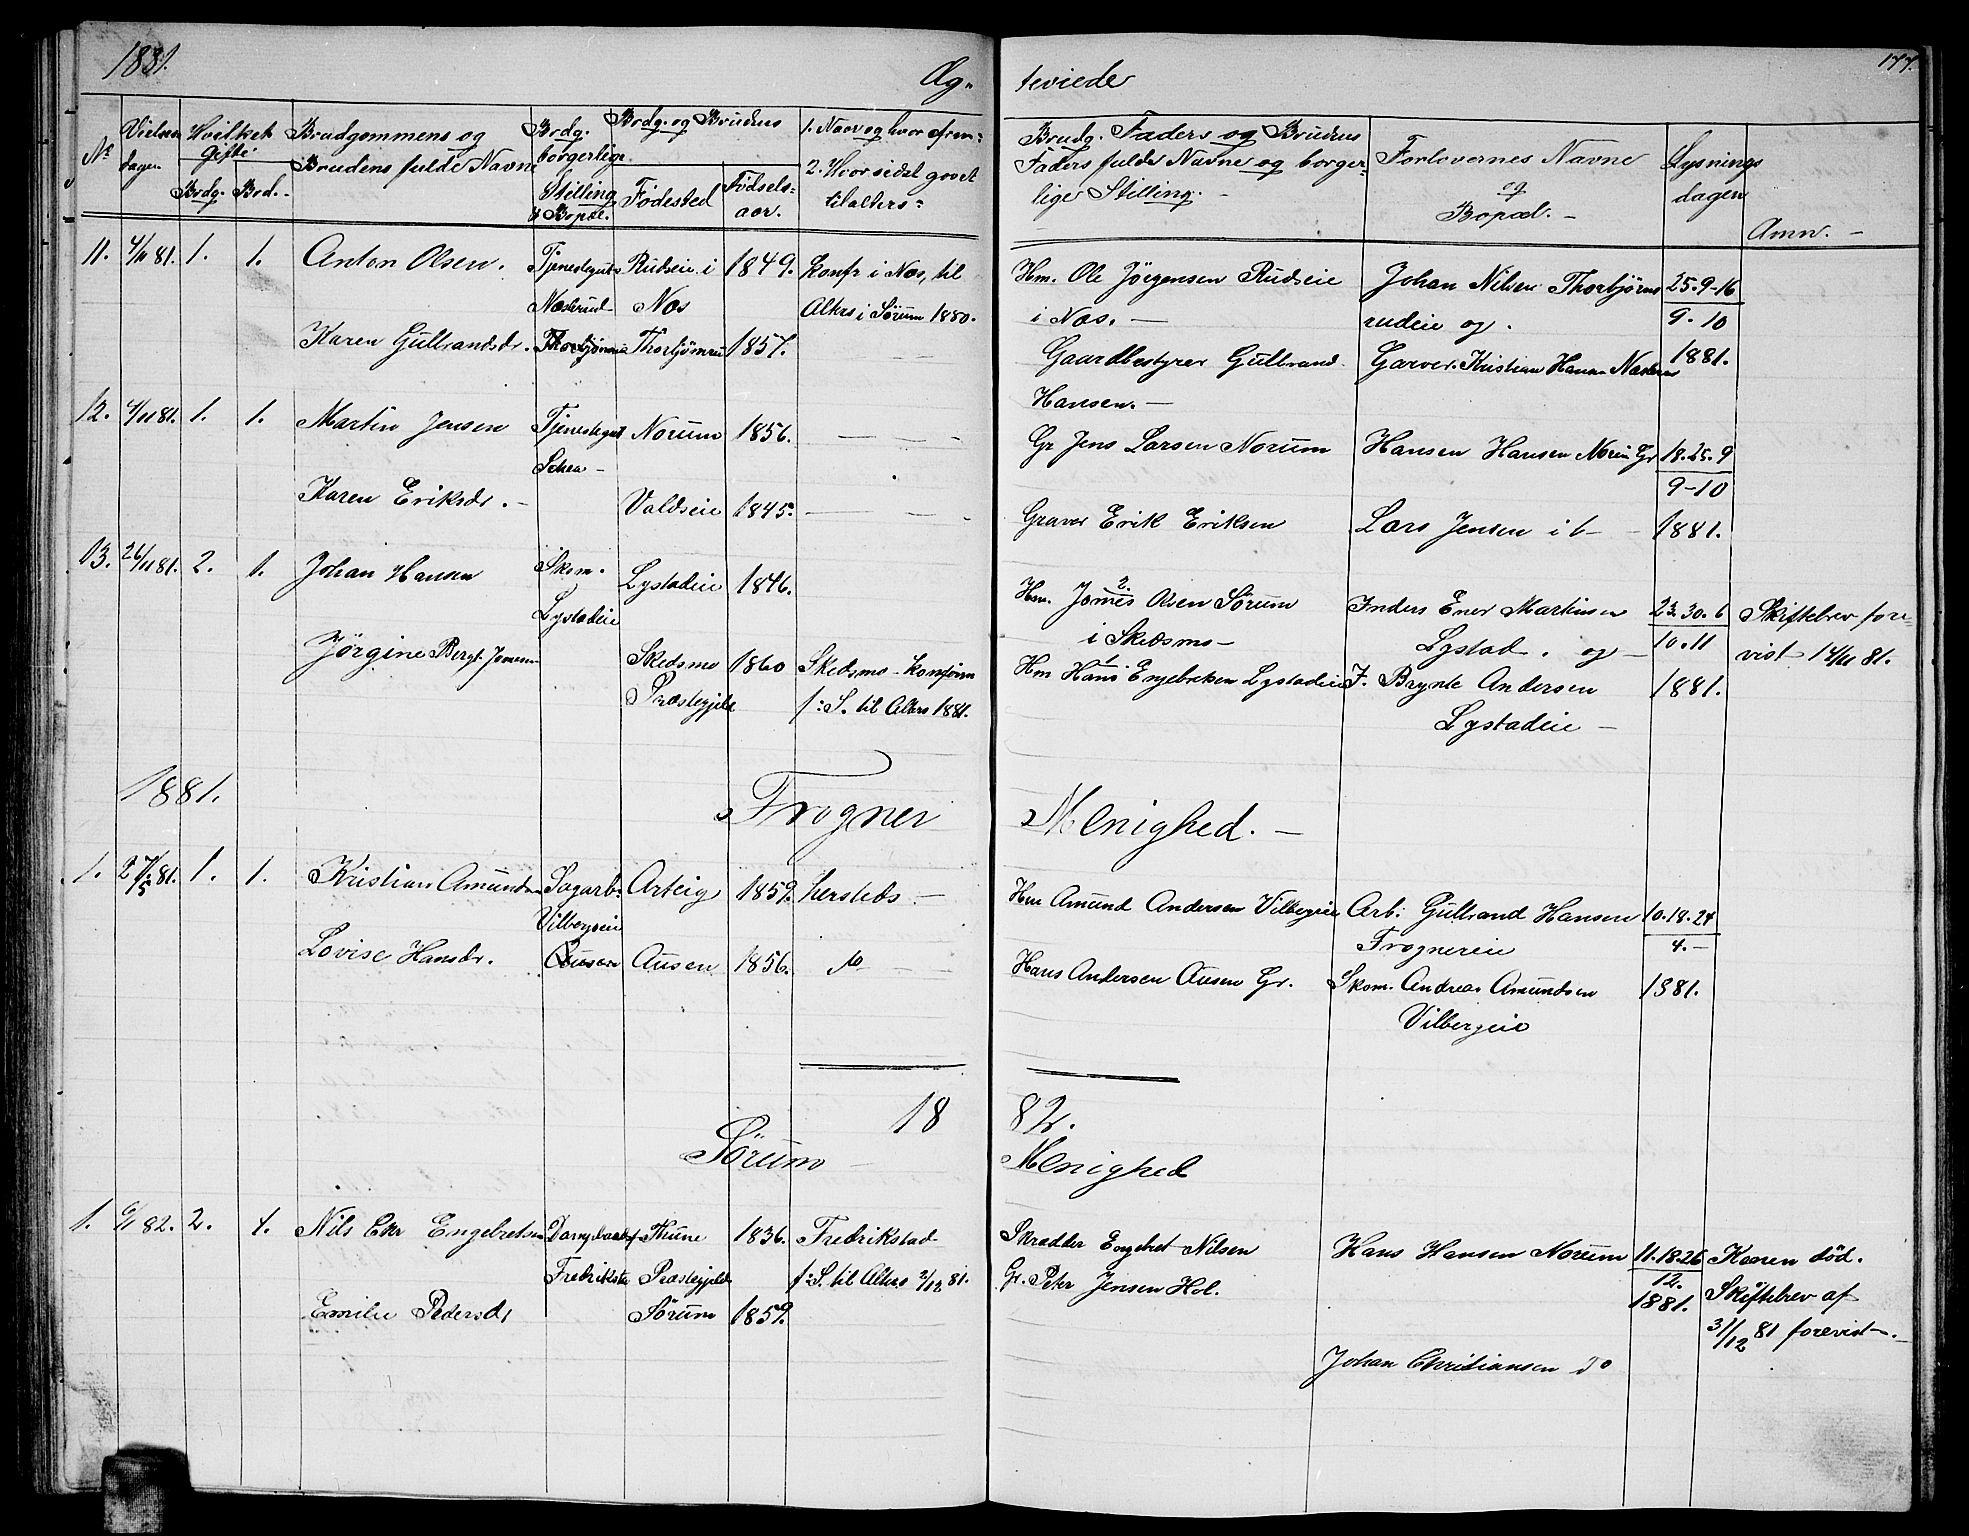 1881.
Æg-
teviede
177.
No
Vielses
dagen
Hvilket
Gifte
Brdg. Brd.
Brudgommens og
Brudens fulde Navne
Brdg.
borgerlige
Stilling
& Bopæl.
Brdg. og Brudens
Fødested
Fødsels-
aar.
1. Naar og hvor
2. Hvor sidst gaaet
til alters
Brudg. Faders og Brudens
Faders fulde Navne og borger-
lige Stilling.
Forlovernes Navne
og
Bopæl.
Lysnings
dagen
Anm.
11. 4/11 81. 1. 1. Anton Olsen. Tjenestegut Rudseie i 1849. konfr i Næs, til
Næs Alters i Sørum 1880.
Karen Gulbrandsdr. 1857.
Hm. Ole Jörgensen Rudseie
i Næs.
Gaardbestyrer Gulbrand
Hansen.
Johan Nilsen Thorbjørns
rudeie og
Garver Kristian Hansen
25.9-16
9-10
1881.
12. 4/11 81. 1. 1. Martin Jensen Tjenestegut Norum 1856.
Karen Eriksdr. Valdseie 1845.
Gr Jens Larsen Norum
Graver Erik Eriksen
Hansen Hansen Gr
Lars Jensen
18.25.9
9-10
1881.
13. 26/11 81. 2. 1. Johan Hansen Skom. Lystadeie 1846.
Lystadeie
Jörgine Bergt. Skedsmo 1860 Skedsmo
Præstegjeld f:S. til Alters 1881.
Hm. Jomes Olsen Sørum
i Skedsmo
Hm Hans Engebretsen Lystadeie
Inders Ener Martinsen
Lystad. og
F. Brynte Andersen
Lystadeie
23.30.6
10.11
1881.
Skiftebrev fore-
vist 14/11 81.
1881.
Frogner
Menighed.
1. 27/5 81. 1. 1. Kristian Amundsen Sagarb. Arteig 1859. hersteds
Vilbergeie
Lovise Hansdr. Ausen Ausen 1856. do
Hm Amund Andersen Vilbergeie
Hans Andersen Ausen Gr.
Arb. Gulbrand Hansen
Frognereie
Skom. Andreas Amundsen
Vilbergeie
10.18.24
4.
1881.
18
82.
Sørum
Menighed
1. 6/1 82. 2. 1. Nils Chr Engebretsen Thune 1836. Fredrikstad
Præstegjeld f:S. til Alters 2/12 81.
Emilie Pedersdr Sørum 1859.
Skrædder Engebret Nilsen
Gr. Peter Jensen Hol.
Hans Hansen Norum
Johan Christiansen do
11.18.26
12.
1881.
Konen död.
Skiftebrev af
31/12 81 forevist.